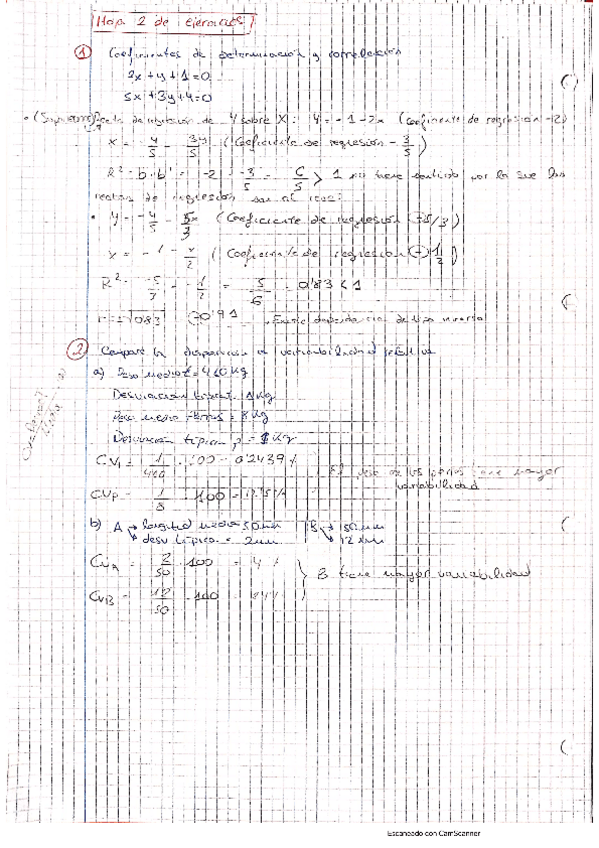 Hoja 2 de ejercicios
① Coeficientes de determinación y correlación
2x+y+1=0
5x+3y+4=0
recta de regresión de Y sobre X: y=-1-2x (Coeficiente de regresión -2)
x = -4/5 - 3y/5 (Coeficiente de regresión -3/5)
R²= b·b' = -2 · -3/5 = 6/5 > 1 no tiene sentido por lo que las
rectas de regresión son al
• y = -4/3 - 5x/3 (Coeficiente de regresión -5/3)
x = -1/2 - y/2 (Coeficiente de regresión - 1/2)
R² = -5/3 · -1/2 = 5/6 = 0'83 < 1
r=±√0'83 -0'91 Existe dependencia de tipo inverso
② Comparar la dispersión o variabilidad relativa
a) Peso medio = 410 Kg
Desviación típica = 1 Kg
Peso medio = 8 Kg
Desviación típica p = 1 Kg
CV₁ = 1/410 · 100 = 0'2439 %
El peso de los tiene mayor
variabilidad
CVp = 1/8 · 100 = 12'5%
b) A → longitud media = 50mm B → 50mm
desv. típica = 2mm → 12 mm
CVA = 2/50 · 100 = 4%
B tiene mayor variabilidad
CVB = 12/50 · 100 = 24%
Escaneado con CamScanner